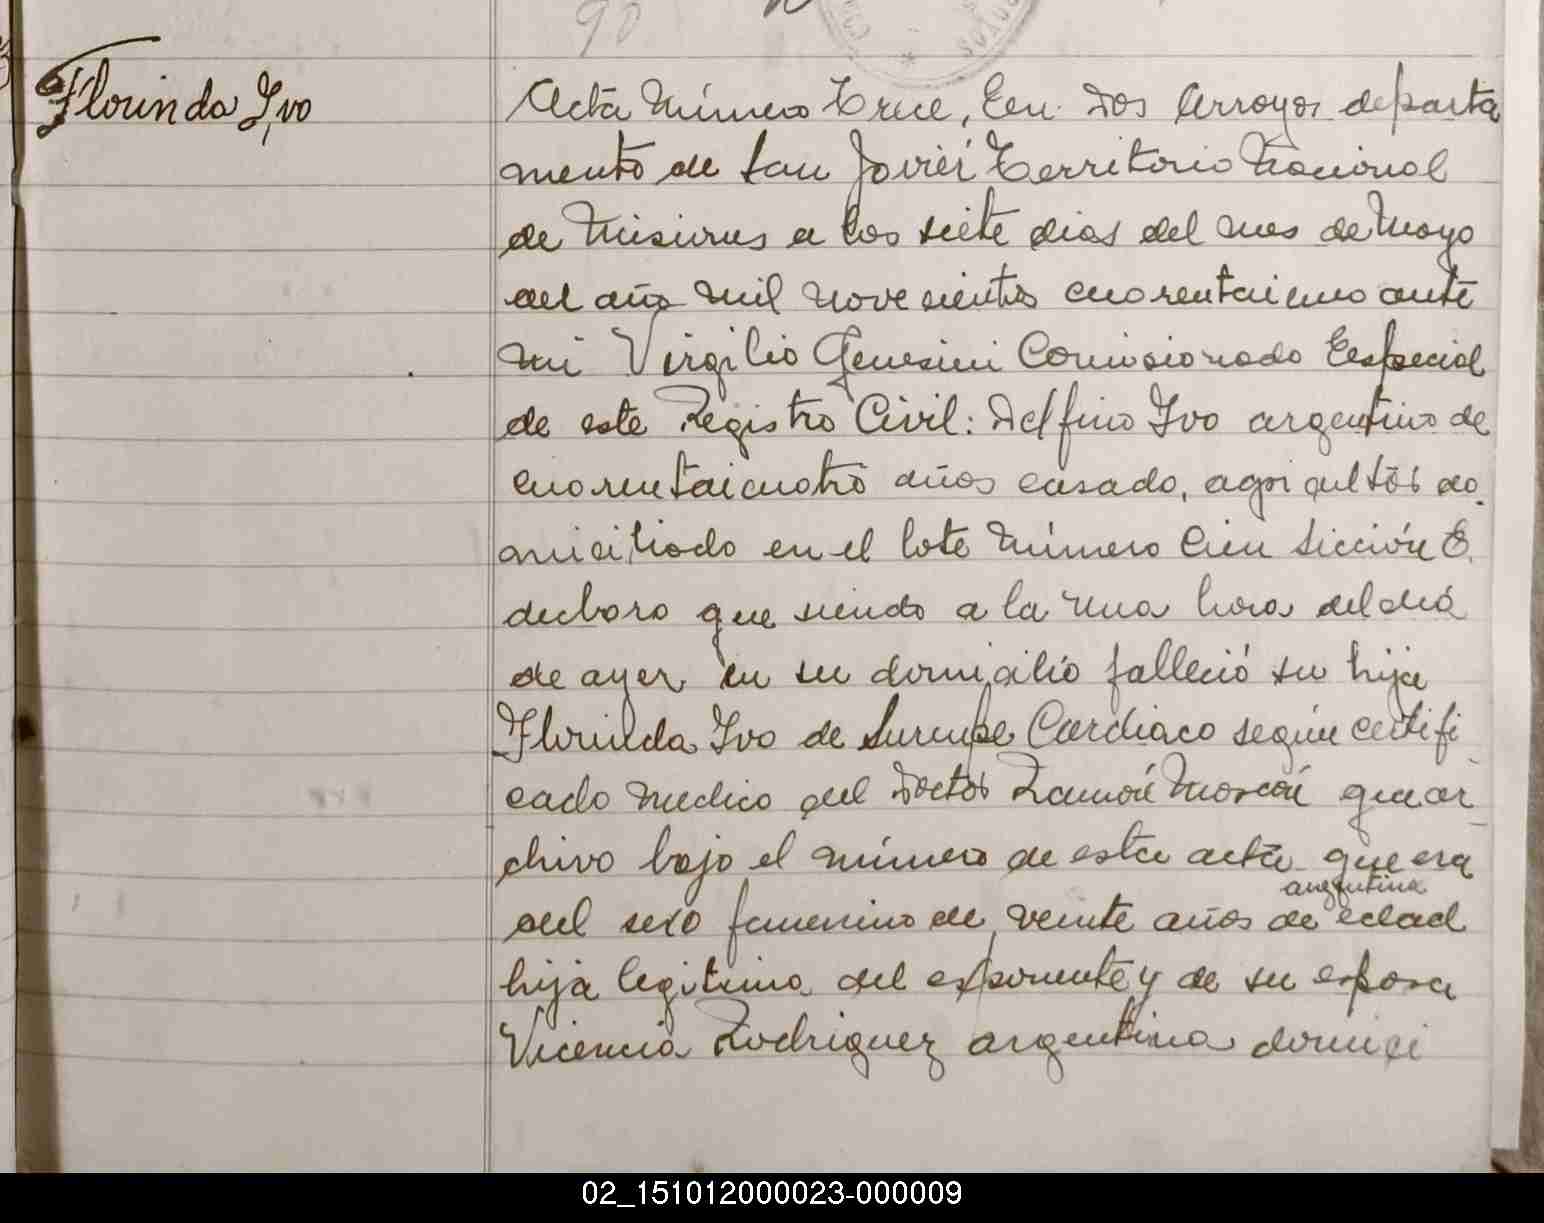 90
Florinda Ivo
Acta Número Trece, En Dos Arroyos departa
mento de San Javier Territorio Nacional
de Misiones a los siete dias del mes de Mayo
del año mil novecientos cuarentaiuno ante
mi Virgilio Genesini Comisionado Especial
de este Registro Civil: Delfino Ivo argentino de
cuarentaicuatro años casado, agricultor do
miciliado en el lote Número Cien Sección
declaro que siendo a la una hora del día
de ayer en su domicilio falleció su hija
Florinda Ivo de Sincope Cardiaco según certifi
cado medico del Doctor Ramón que ar
chivo bajo el número de esta acta que era
argentina
del sexo femenino de veinte años de edad
hija legitima del exponente y de su esposa
Vicencia Rodriguez argentina domici
02_151012000023-000009